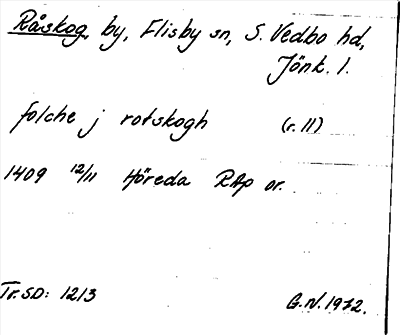 Råskog by, Flisby sn, S. Vedbo hd,
Jönk. l.
folche j rotskogh (r. 11)
1409 12/11 Höreda RAp or.
Tr. SD: 1213 G.N. 1972.